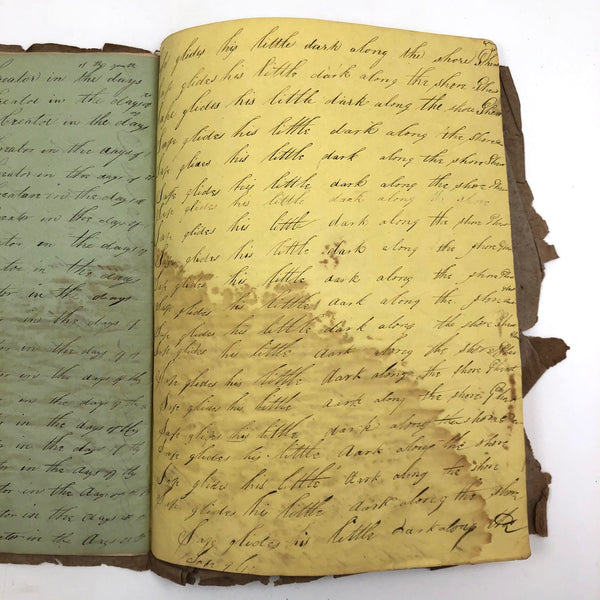 of thy youth
reator in the days
reator in the days
Creator in the days
reator in the days of
reator in the days of
reator in the days
reator in the days of
reator in the days of
reator in the days
ator in the days
tor in the days of
tor in the day of
or in the day of thy
or in the day of thy
or in the days of
or in the day of thy
tor in the days of thy
tor in the days of
ator in the days of
reator in the days of
glides his little dark along the shore
glides his little dark along the shore
glides his little dark along the shore
glides his little dark along the shore
glides his little dark along the shore
Safe glides his little dark along the shore
Safe glides his little dark along the shore
Safe glides his little dark along the shore
Safe glides his little dark along the shore
Safe glides his little dark along the shore
Safe glides his little dark along the shore
Safe glides his little dark along the shore
Safe glides his little dark along the shore
Safe glides his little dark along the shore
Safe glides his little dark along the shore
Safe glides his little dark along the shore
Safe glides his little dark along the shore
Safe glides his little dark along the shore
Safe glides his little dark along
Safe gli